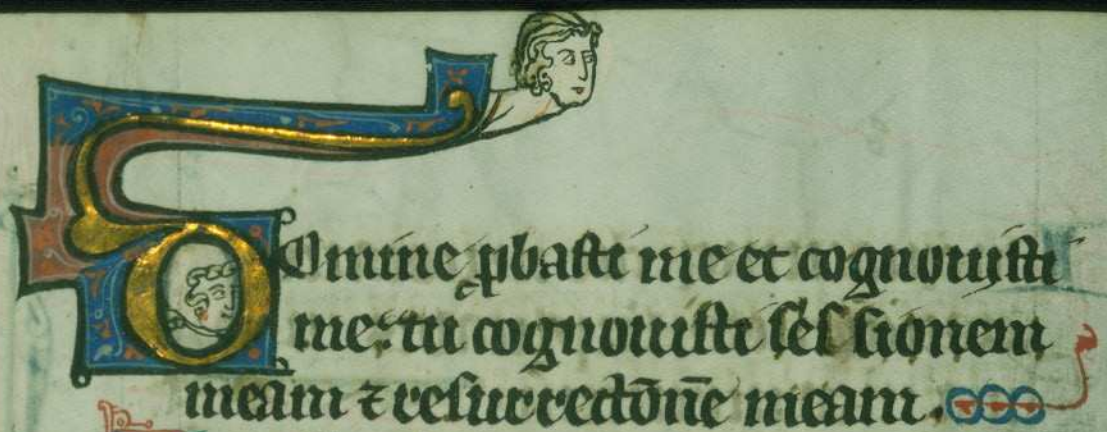 Domine ꝓbasti me et cognouisti
me: tu cognouisti ses sionem
meam ⁊ resurrectōnē meam.